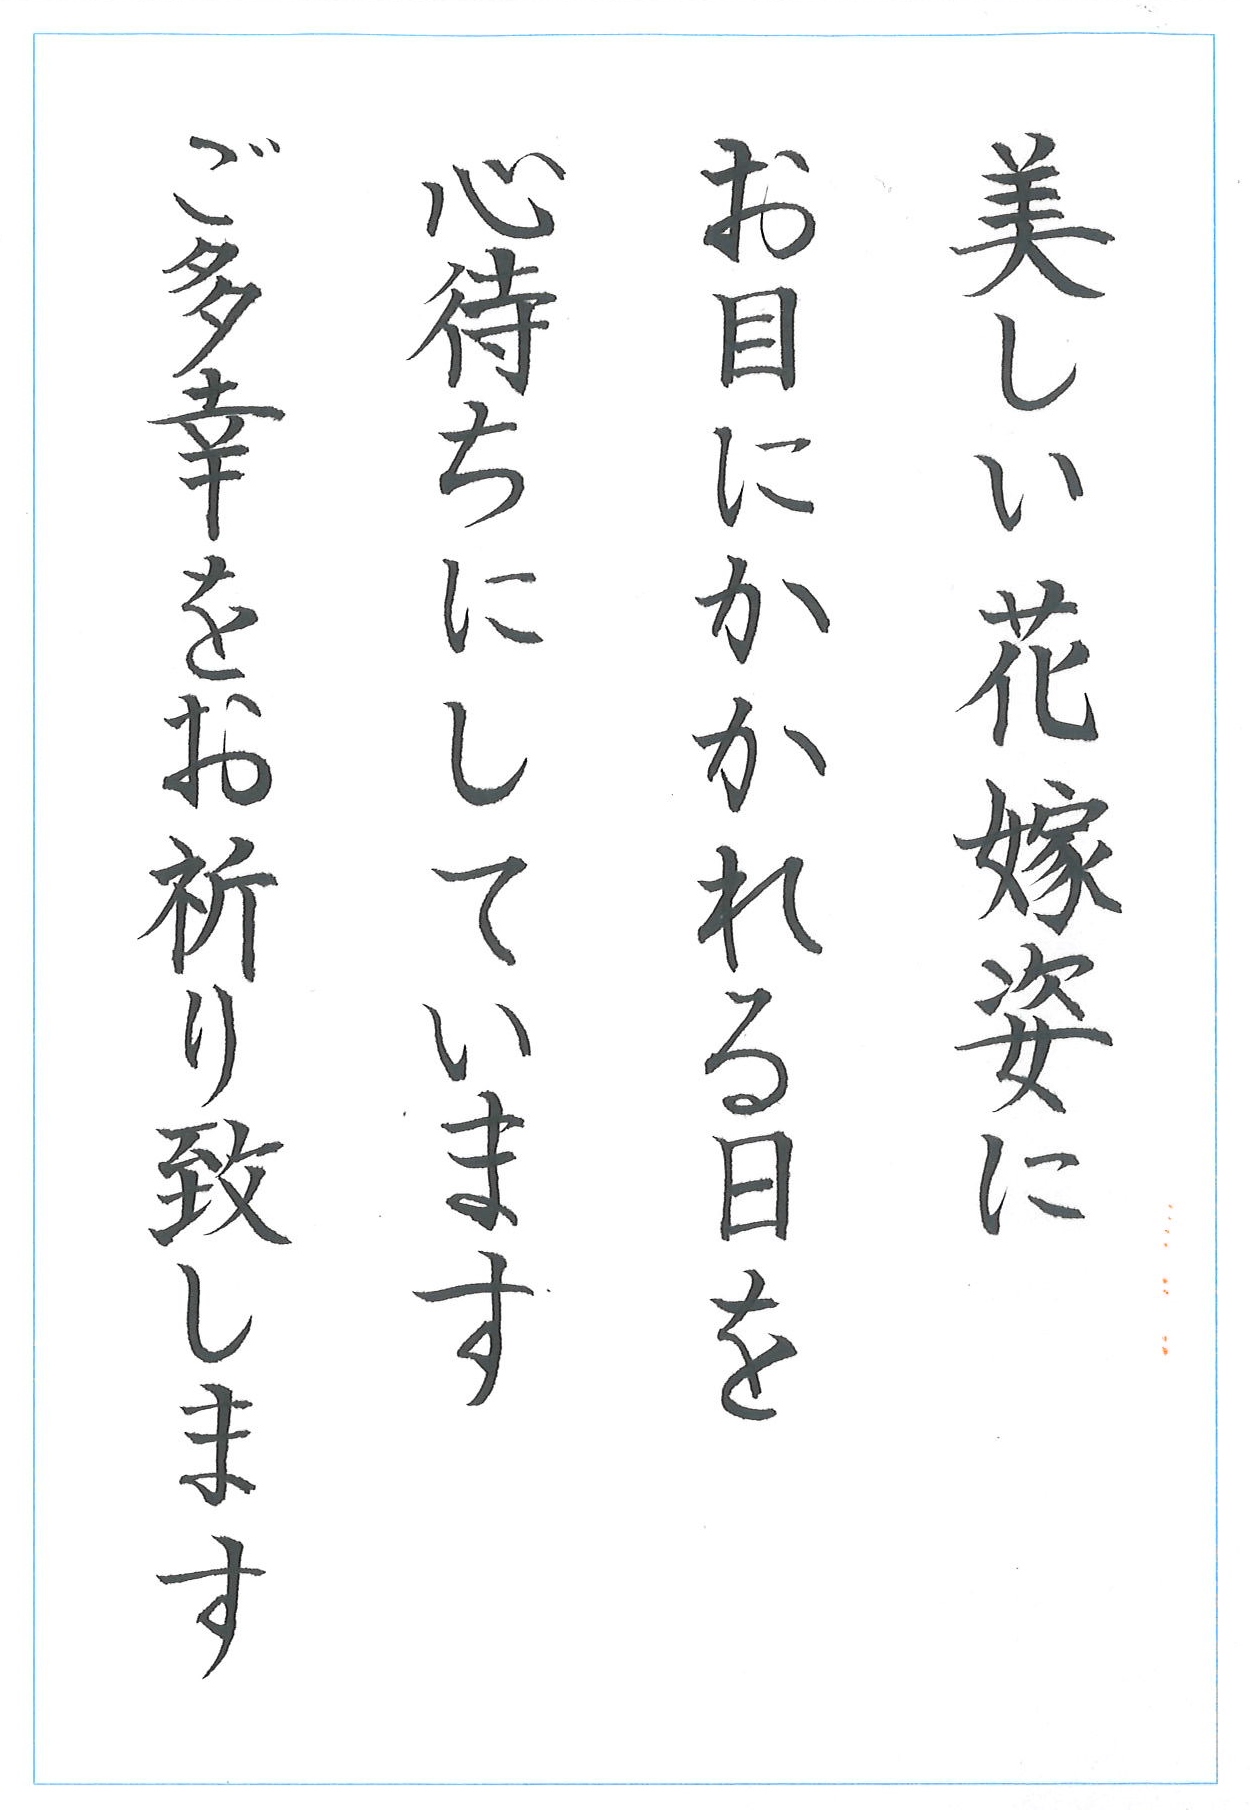 美しい花嫁姿に
お目にかかれる日を
心待ちにしています
ご多幸をお祈り致します